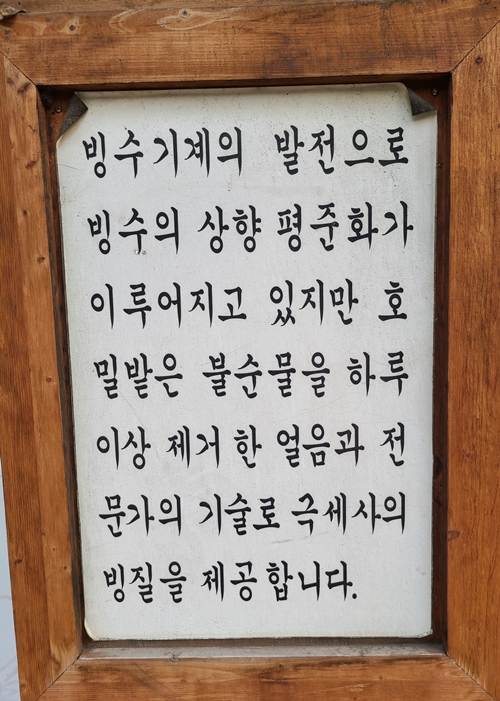 빙수기계의 발전으로
빙수의 상향 평준화가
이루어지고 있지만 호
밀밭은 불순물을 하루
이상 제거 한 얼음과 전
문가의 기술로 극세사의
빙질을 제공합니다.